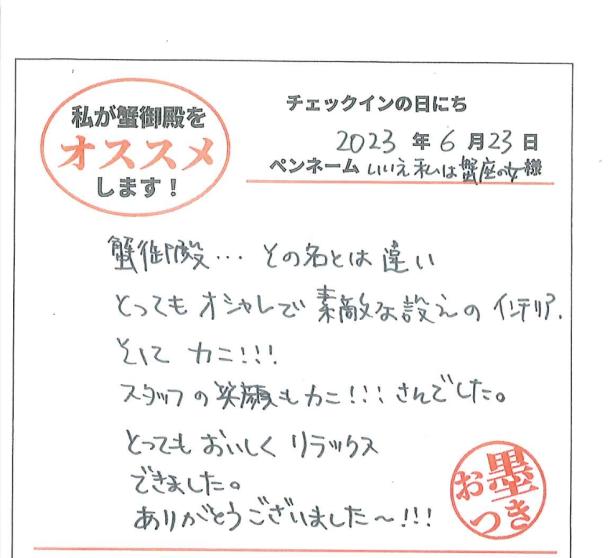 私が蟹御殿を
オススメ
します!
チェックインの日にち
2023 年 6 月 23 日
ペンネーム いいえ私は蟹座の女 様
蟹御殿… その名とは違い
とっても オシャレで 素敵な設えの インテリア.
そして カニ!!!
スタッフの笑顔もカニ!!! さんでした。
とっても おいしく リラックス
できました。
ありがとうございました～!!!
お墨
つき